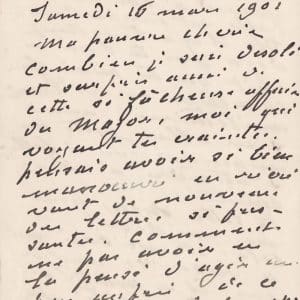 Samedi 16 mars 1901
Ma pauvre cherie
combien je suis désolé
et surpris aussi de
cette si fâcheuse affaire
du Major, moi qui
voyant tes craintes
pensais avoir si bien
manœuvré en
vant de nouveau
des lettres si pres-
santes. Comment
ne pas avoir eu
la pensé d'agir
ce